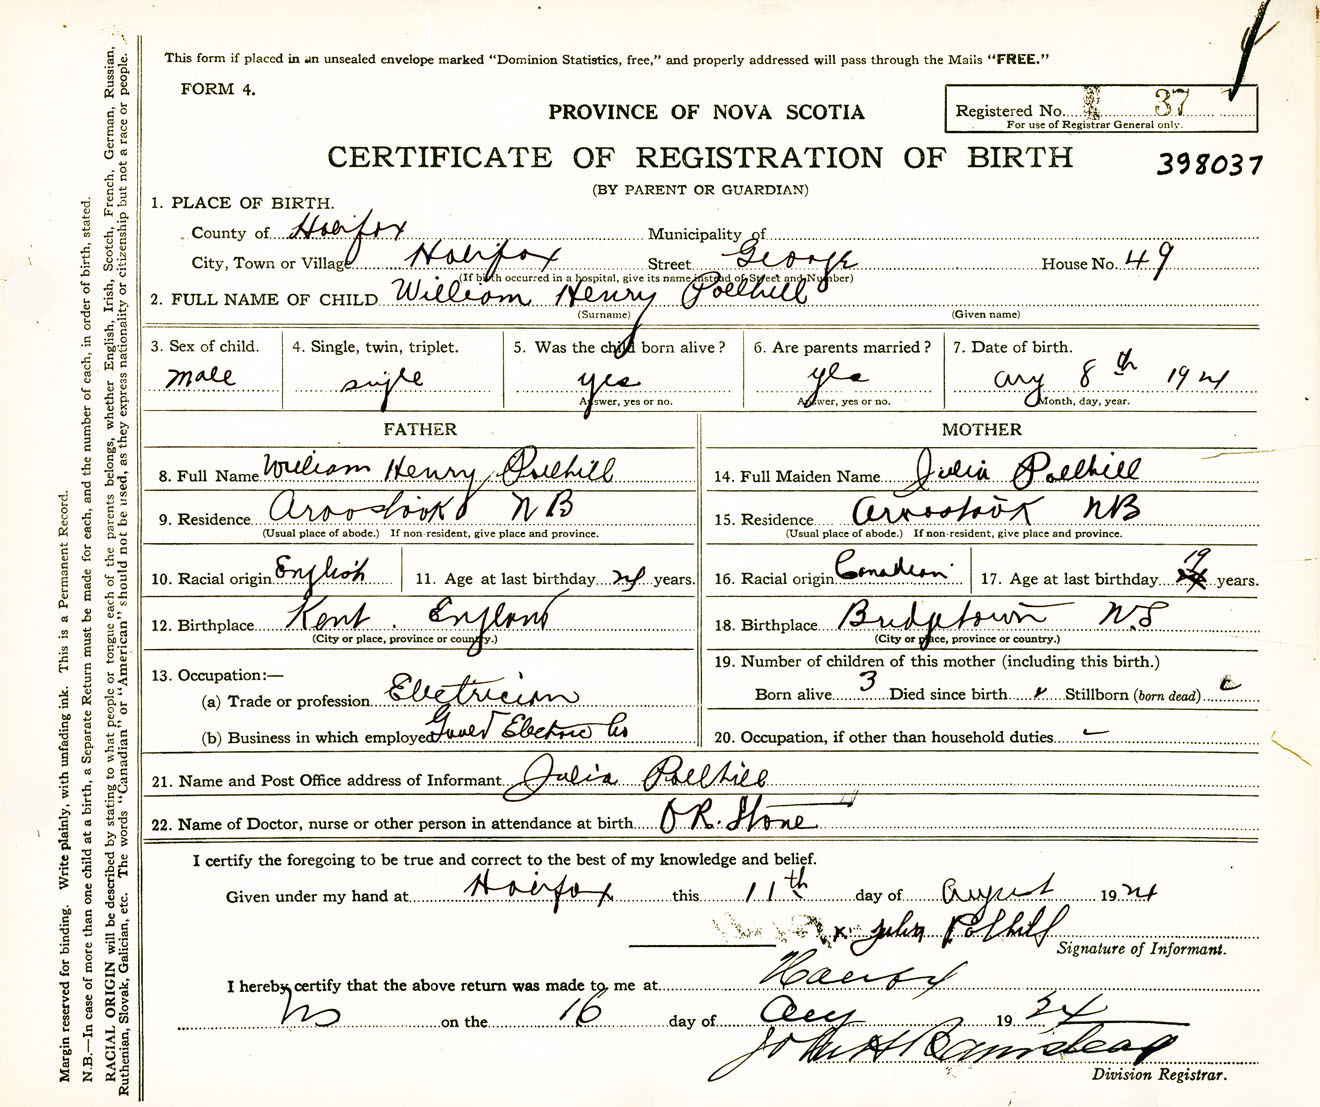 This form if placed in an unsealed envelope marked "Dominion Statistics, free," and properly addressed will pass through the Mails "FREE."
FORM 4.
PROVINCE OF NOVA SCOTIA
Registered No. 37
For use of Registrar General only.
CERTIFICATE OF REGISTRATION OF BIRTH
398037
(BY PARENT OR GUARDIAN)
1. PLACE OF BIRTH.
County of Halifax Municipality of
City, Town or Village Halifax Street George House No. 49
(If birth occurred in a hospital, give its name instead of Street and Number)
2. FULL NAME OF CHILD William Henry Polhill
(Surname) (Given name)
3. Sex of child. 4. Single, twin, triplet. 5. Was the child born alive? 6. Are parents married? 7. Date of birth.
male single yes yes Aug 8th 1924
Answer, yes or no. Answer, yes or no. Month, day, year.
FATHER MOTHER
8. Full Name William Henry Polhill 14. Full Maiden Name Julia Polhill
9. Residence Aroostook NB 15. Residence Aroostook NB
(Usual place of abode.) If non-resident, give place and province. (Usual place of abode.) If non-resident, give place and province.
10. Racial origin English 11. Age at last birthday 24 years. 16. Racial origin Canadian 17. Age at last birthday 19 years.
12. Birthplace Kent. England 18. Birthplace Bridgetown N.S
(City or place, province or country.) (City or place, province or country.)
13. Occupation:— 19. Number of children of this mother (including this birth.)
(a) Trade or profession Electrician Born alive 3 Died since birth Stillborn (born dead)
(b) Business in which employed Electric Co 20. Occupation, if other than household duties
21. Name and Post Office address of Informant Julia Polhill
22. Name of Doctor, nurse or other person in attendance at birth O R. Stone
I certify the foregoing to be true and correct to the best of my knowledge and belief.
Given under my hand at Halifax this 11th day of August 1924
x Julia Polhill
Signature of Informant.
I hereby certify that the above return was made to me at Halifax
NS on the 16 day of Aug 1924
John H
Division Registrar.
Margin reserved for binding. Write plainly, with unfading ink. This is a Permanent Record.
N.B.—In case of more than one child at a birth, a Separate Return must be made for each, and the number of each, in order of birth, stated.
RACIAL ORIGIN will be described by stating to what people or tongue each of the parents belongs, whether English, Irish, Scotch, French, German, Russian,
Ruthenian, Slovak, Galician, etc. The words "Canadian" or "American" should not be used, as they express nationality or citizenship but not a race or people.